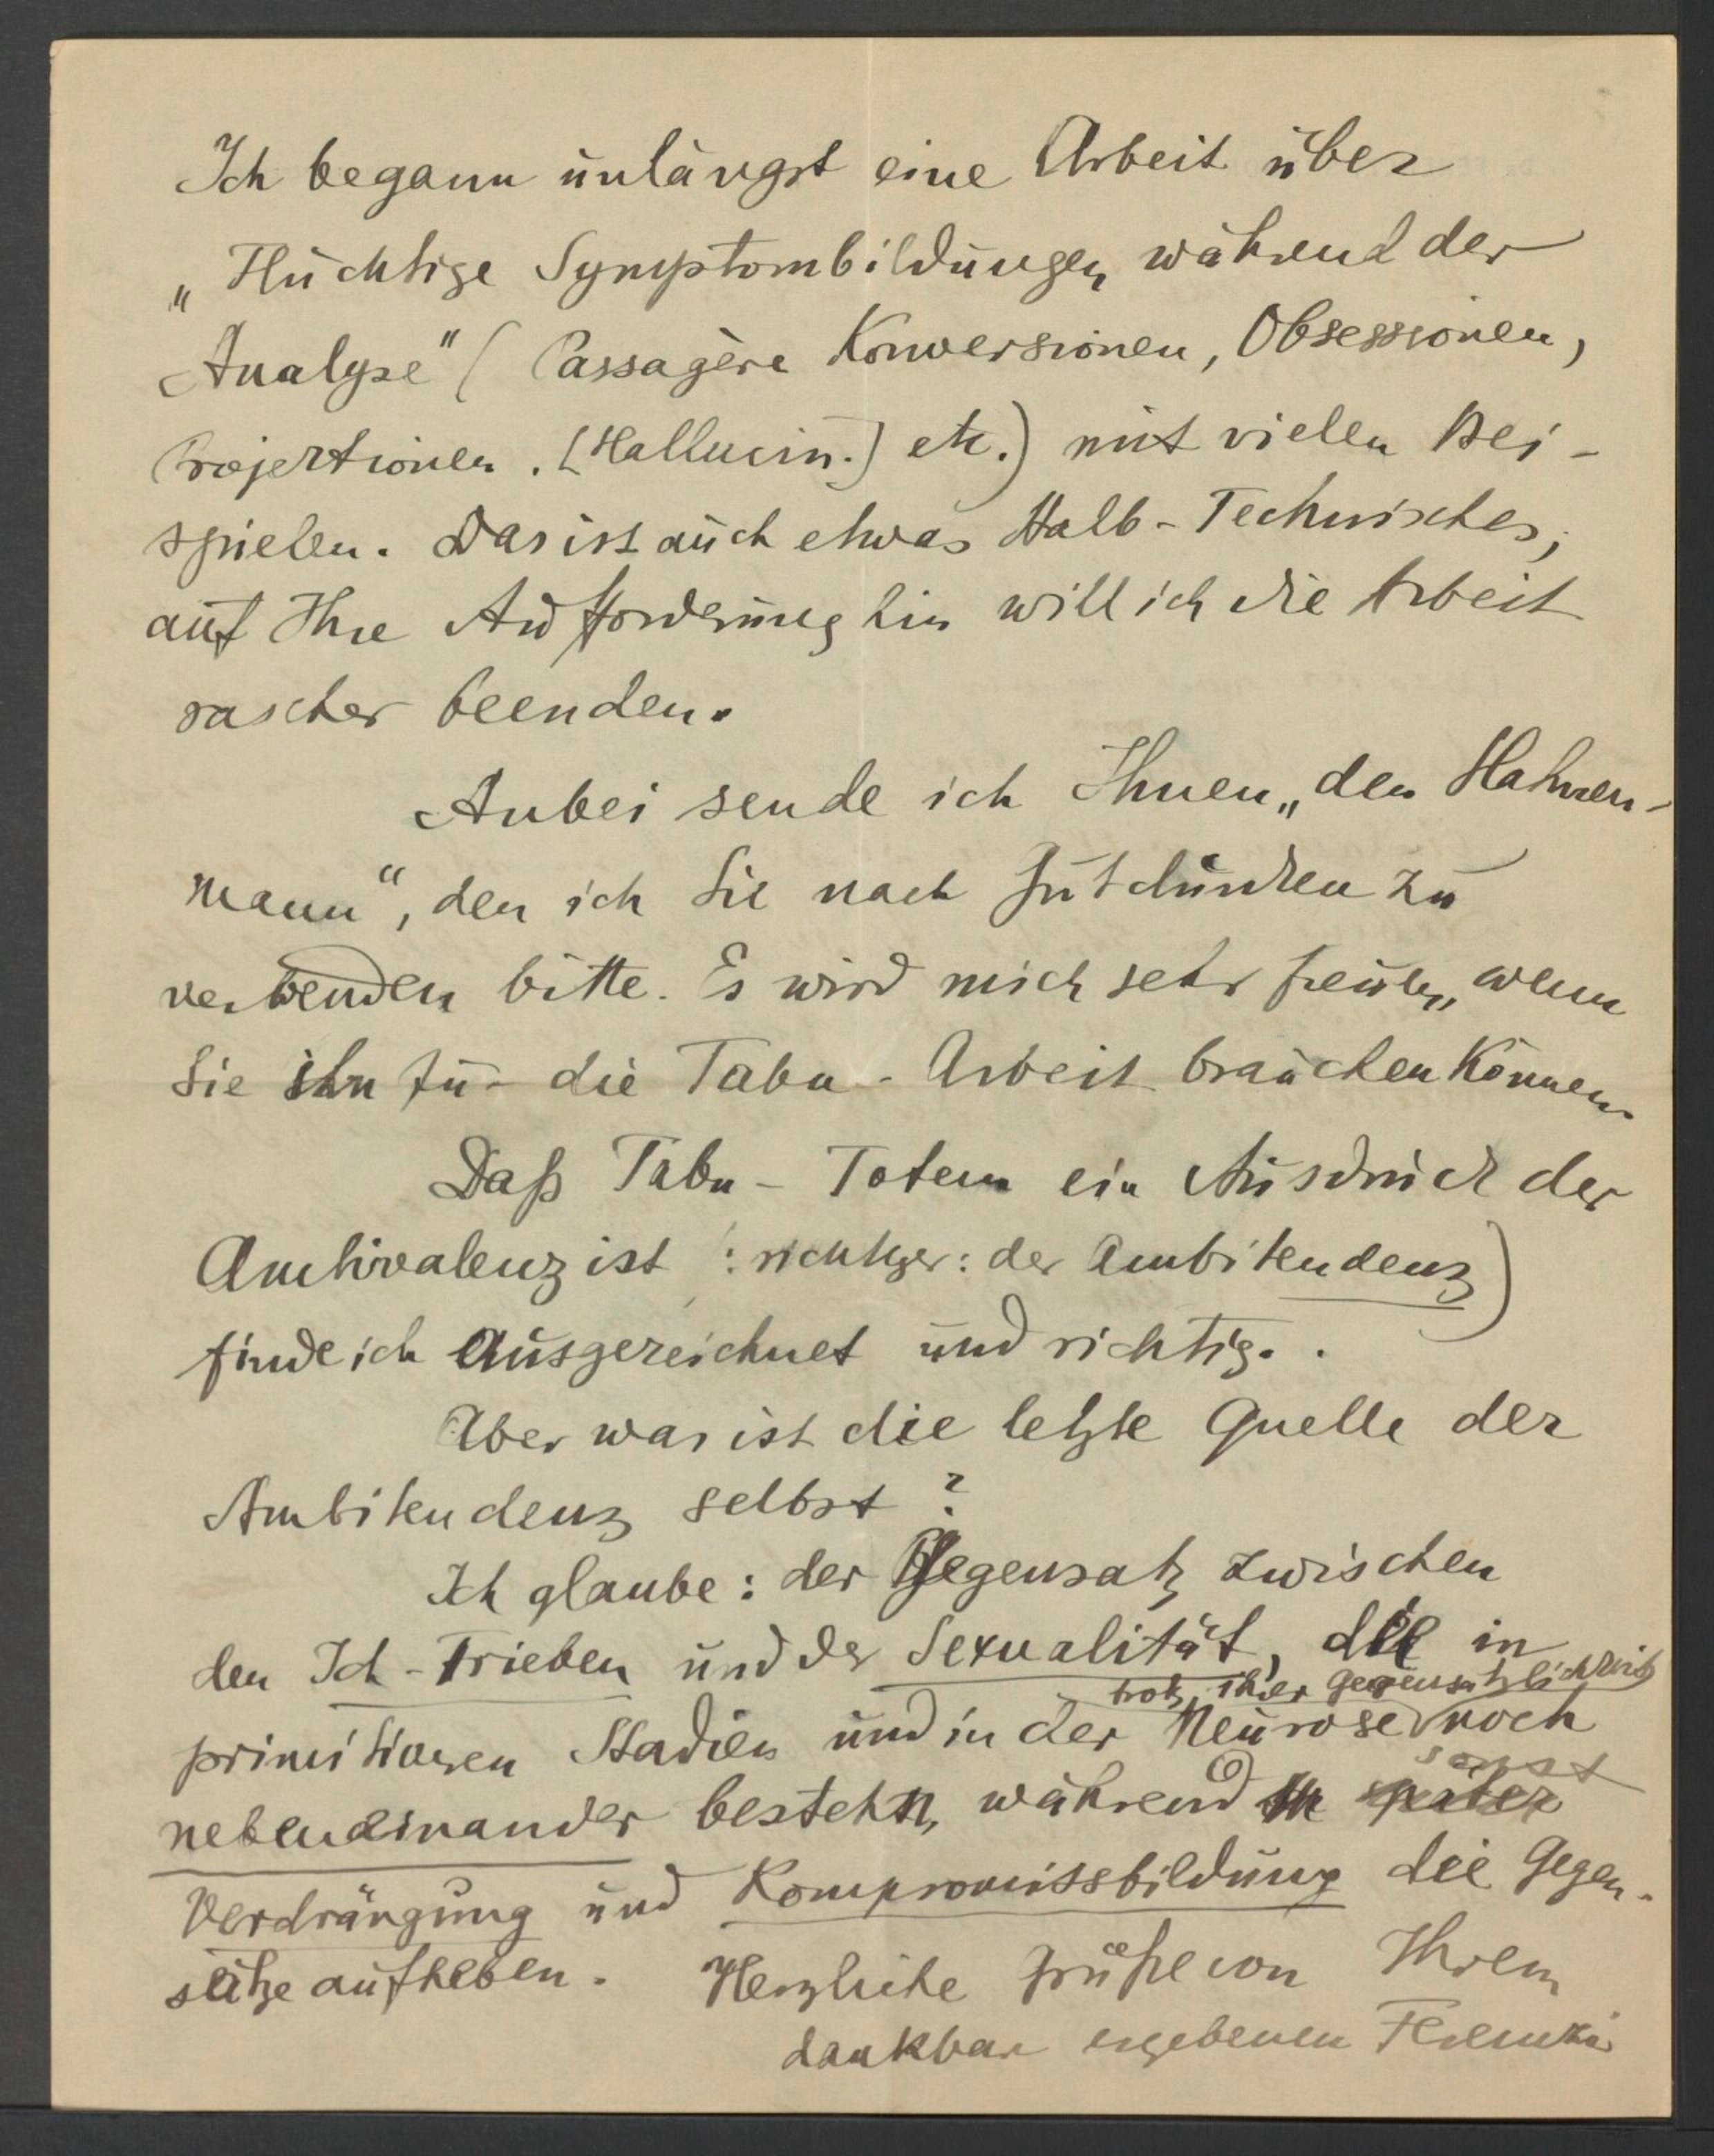 Ich begann unlängst eine Arbeit über
„Flüchtige Symptombildungen während der
Analyse" (Passagère Konversionen, Obsessionen,
Projektionen. [Hallucin.] etc.) mit vielen Bei-
spielen. Das ist auch etwas Halb-Technisches;
auf Ihre Aufforderung hin will ich die Arbeit
rascher beenden.
Anbei sende ich Ihnen „den Hahnen-
mann", den ich Sie nach Gutdünken zu
verwenden bitte. Es wird mich sehr freuen, wenn
Sie ihn für die Tabu-Arbeit brauchen können.
Daß Tabu-Totem ein Ausdruck der
Ambivalenz ist (: richtiger: der Ambitendenz)
finde ich ausgezeichnet und richtig.
Aber was ist die letzte Quelle der
Ambitendenz selbst?
Ich glaube: der Gegensatz zwischen
den Ich-Trieben und der Sexualität, die in
trotz ihrer Gegensätzlichkeit
primitiven Stadien und in der Neurose noch
sonst
nebeneinander bestehn, während später
Verdrängung und Kompromissbildung die Gegen-
sätze aufheben. Herzliche Grüße von Ihrem
dankbar ergebenen Ferenczi